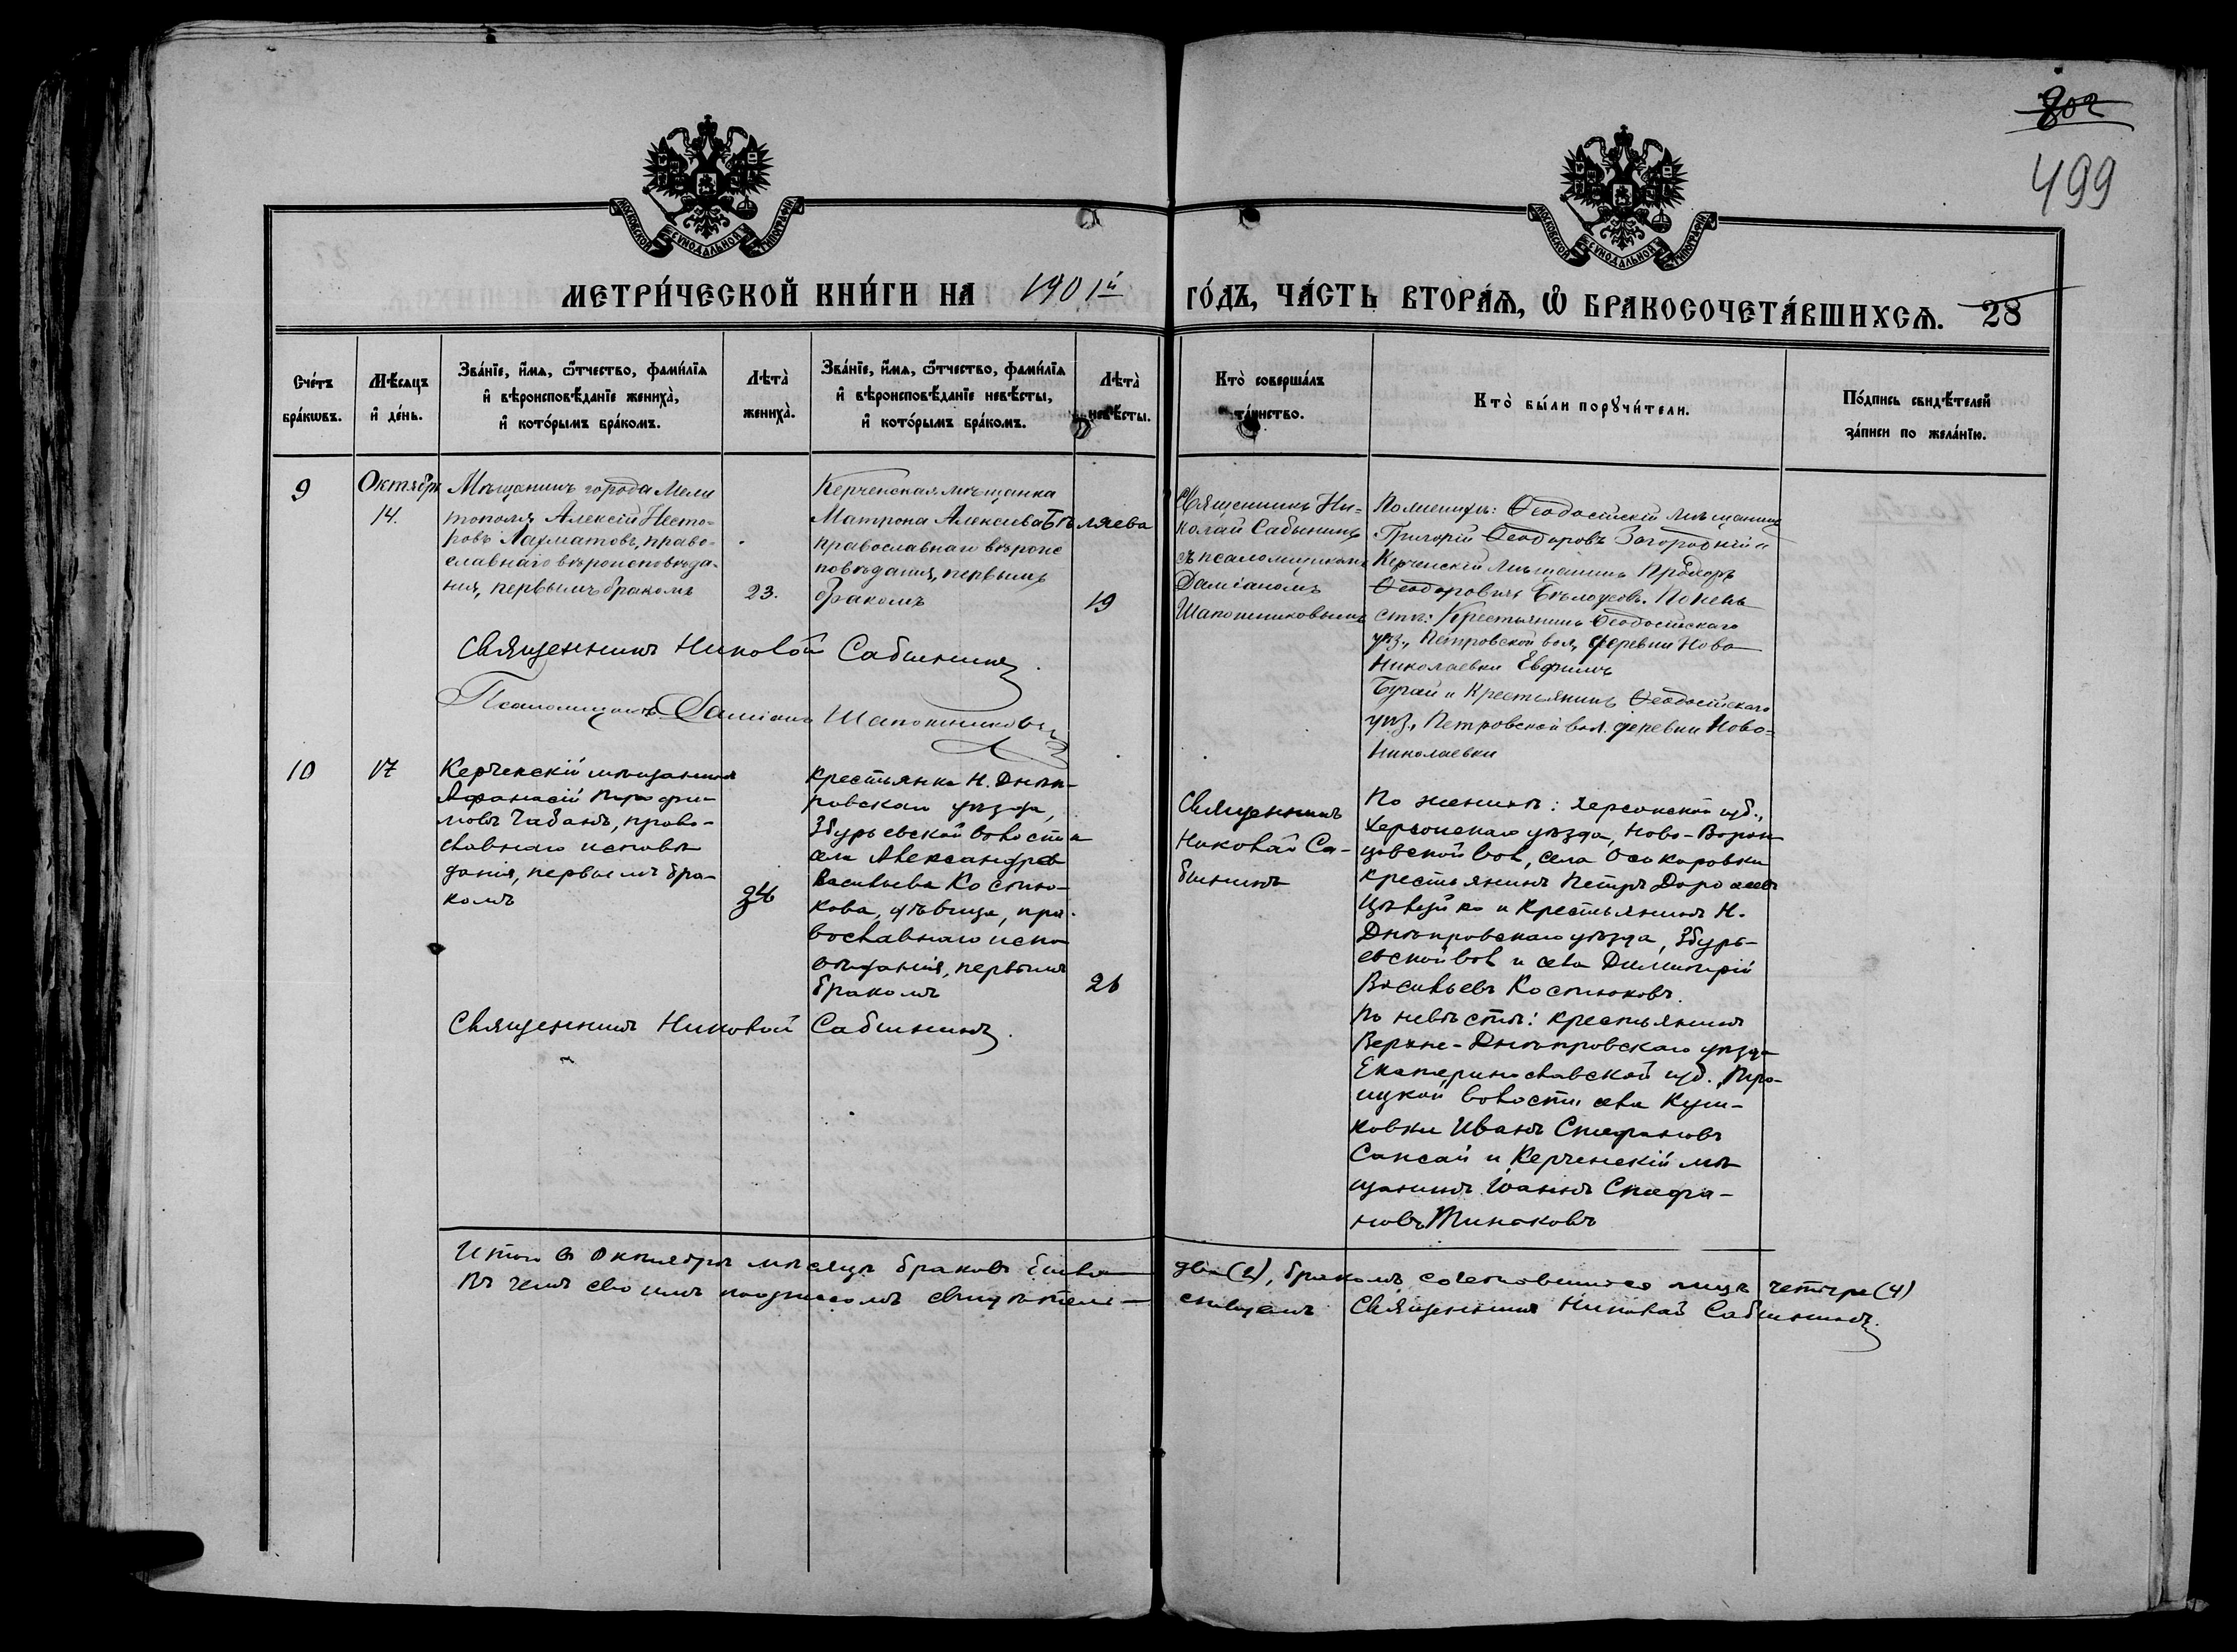 802
499
МОСКОВСКОЙ СѴНОДАЛЬНОЙ ТИПОГРАФІИ
МОСКОВСКОЙ СѴНОДАЛЬНОЙ ТИПОГРАФІИ
МЕТРИ́ЧЕСКОЙ КНИ́ГИ НА 1901й
ГО́ДЪ, ЧА́СТЬ ВТОРА́Ѧ, Ѡ҆ БРАКОСОЧЕТА́ВШИХСѦ. 28
Сче́тъ
бра́кѡвъ.
Мѣ́сѧцъ
и҆ де́нь.
Зва́нїе, и҆́мѧ, ѻ҆́тчество, фами́лїѧ
и҆ вѣроисповѣ́данїе женихà,
и҆ кото́рымъ бра́комъ.
Лѣ́тà
женихà.
Зва́нїе, и҆́мѧ, ѻ҆́тчество, фами́лїѧ
и҆ вѣроисповѣ́данїе невѣ́сты,
и҆ кото́рымъ бра́комъ.
Лѣ́тà
невѣ́сты.
Кто̀ соверша́лъ
та́инство.
Кто̀ бы́ли порꙋчи́тели.
По́дпись свидѣ́телей
за́писи по жела́нїю.
9
Октября
14.
Мѣщанинъ города Мели
тополя Алексій Несто-
ровъ Лахматовъ, право-
славнаго вѣроисповѣда-
нія, первымъ бракомъ
23.
Керченская мѣщанка
Матрона Алексѣева Бѣляева
православнаго вѣроис
повѣданія, первымъ
бракомъ
19
Священникъ Ни-
колай Сабынинъ
съ псаломщикомъ
Даміаномъ
Шапошниковымъ
По женихѣ: Ѳеодосійскій мѣщанинъ
Григорій Ѳеодоровъ Загородній и
Керченскій мѣщанинъ Прохоръ
Ѳеодоровичъ Бѣлоусовъ. По невѣ
стѣ: Крестьянинъ Ѳеодосійскаго
уѣз., Петровской вол, деревни Ново
Николаевки Евфимъ
Бугай и Крестьянинъ Ѳеодосійскаго
уѣз., Петровской вол. деревни Ново-
Николаевки
Священникъ Николай Сабынинъ.
Псаломщикъ Даміанъ Шапошниковъ
10
17
Керченскій мѣщанинъ
Аѳанасій Трофи
мовъ Чабанъ, право-
славнаго исповѣ
данія, первымъ бра-
комъ
Крестьянка Н. Днѣп-
ровскаго уѣзда,
Збурьевской волости
села Александра
Васильева Костю-
кова, дѣвица, пра-
вославнаго испо
вѣданія, первымъ
бракомъ
26
Священникъ
Николай Са-
бынинъ
По женихѣ: Херсонской губ.,
Херсонскаго уѣзда, Ново-Ворон
цовской вол, села Осокоровки
крестьянинъ Петръ Дороѳеевъ
и крестьянинъ Н.
Днѣпровскаго уѣзда, Збурь-
евской вол и села Димитрій
Васильевъ Костюковъ.
По невѣстѣ: крестьянинъ
Верхне-Днѣпровскаго уѣзда
Екатеринославской губ. Тро-
ицкой волости села
Иванъ Стефановъ
Сапсай и Керченскій мѣ
щанинъ Іоаннъ Стефа-
новъ Минаковъ
Священникъ Николай Сабынинъ.
Итого въ Октябрѣ мѣсяцѣ браковъ было два (2), бракомъ сочетавшихся лицъ четыре (4)
Въ чемъ своимъ подписомъ свидѣтельствуемъ Священникъ Николай Сабынинъ.